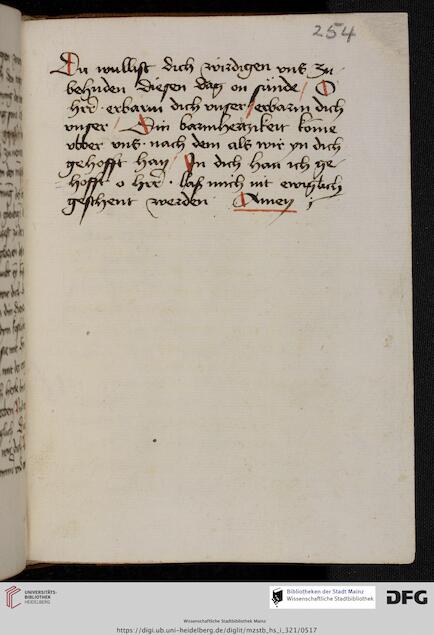 254
Du wullist dich wirdigen vns zu
behuden diesen dag on sunde / O
hrr · erbarm dich vnser / erbarm dich
vnser / Din barmhertzikeit kome
vber vns · nach dem als wir yn dich
gehofft han / In dich han ich ge-
hofft o hrr · laß mich nit ewiglich
geschent werden Amen
UNIVERSITÄTS-
BIBLIOTHEK
HEIDELBERG
Wissenschaftliche Stadtbibliothek Mainz
https://digi.ub.uni-heidelberg.de/diglit/mzstb_hs_i_321/0517
Bibliotheken der Stadt Mainz
Wissenschaftliche Stadtbibliothek
DFG